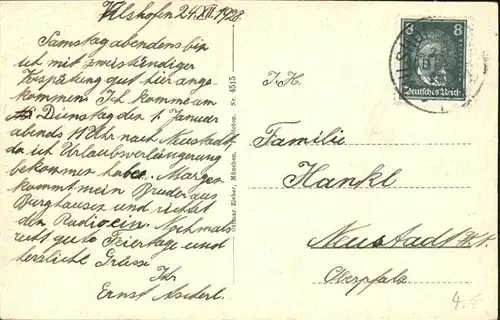 Vilshofen 24.XII.1928.
Samstag abendens bin
ich mit zweistündiger
Verspätung gut hier ange-
kommen. Ich komme am
Dienstag den 1. Januar
abends 11 Uhr nach Neustadt,
da ich Urlaubsverlängerung
bekommen habe. Morgen
kommt mein Bruder aus
Burghausen und richtet
den Radio ein. Nochmals
recht gute Feiertage und
herzliche Grüsse
Ihr
Ernst Ascherl.
Ottmar Zieher, München. Nr. 4515
8 8
Deutsches Reich
I. H.
Familie
Hankl
Neustadt
Oberpfalz
4.